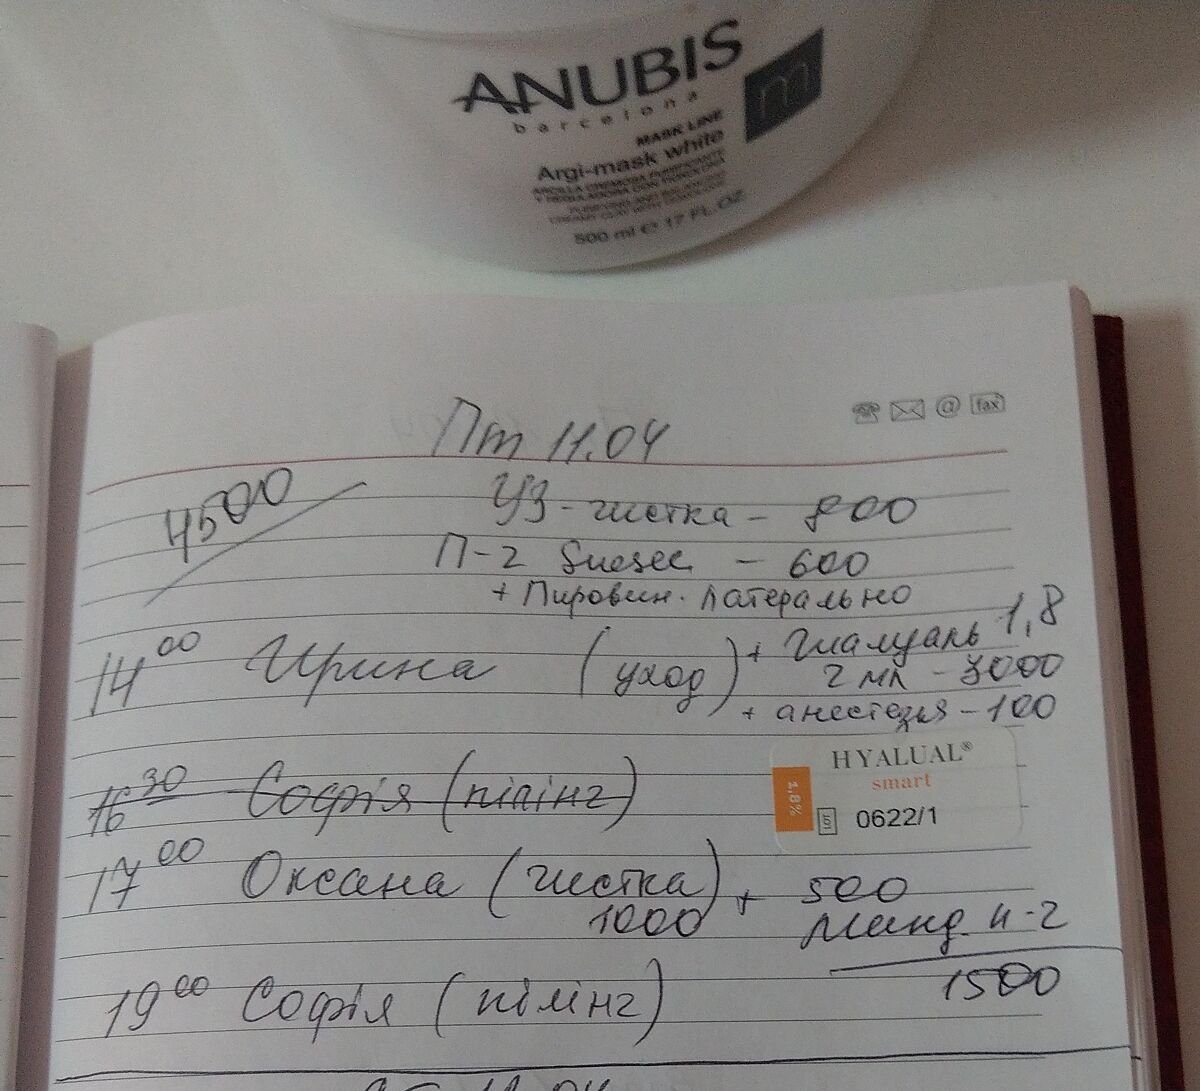 ANUBIS
barcelona
m
MASK LINE
Argi-mask white
ARCILLA CREMOSA PURIFICANTE
500 ml e 17 FL OZ
fax
Пт 11.04
4500
УЗ - чистка - 800
П-2 - 600
+ Пировин. латерально
14 00 Ирина (уход) + Гиалуаль 1,8
2 мл - 3000
+ анестезия - 100
16 30 Софія (пілінг)
HYALUAL®
smart
1,8%
0622/1
17 00 Оксана (чистка) + 500
1000 Минд. п-г
1500
19 00 Софія (пілінг)